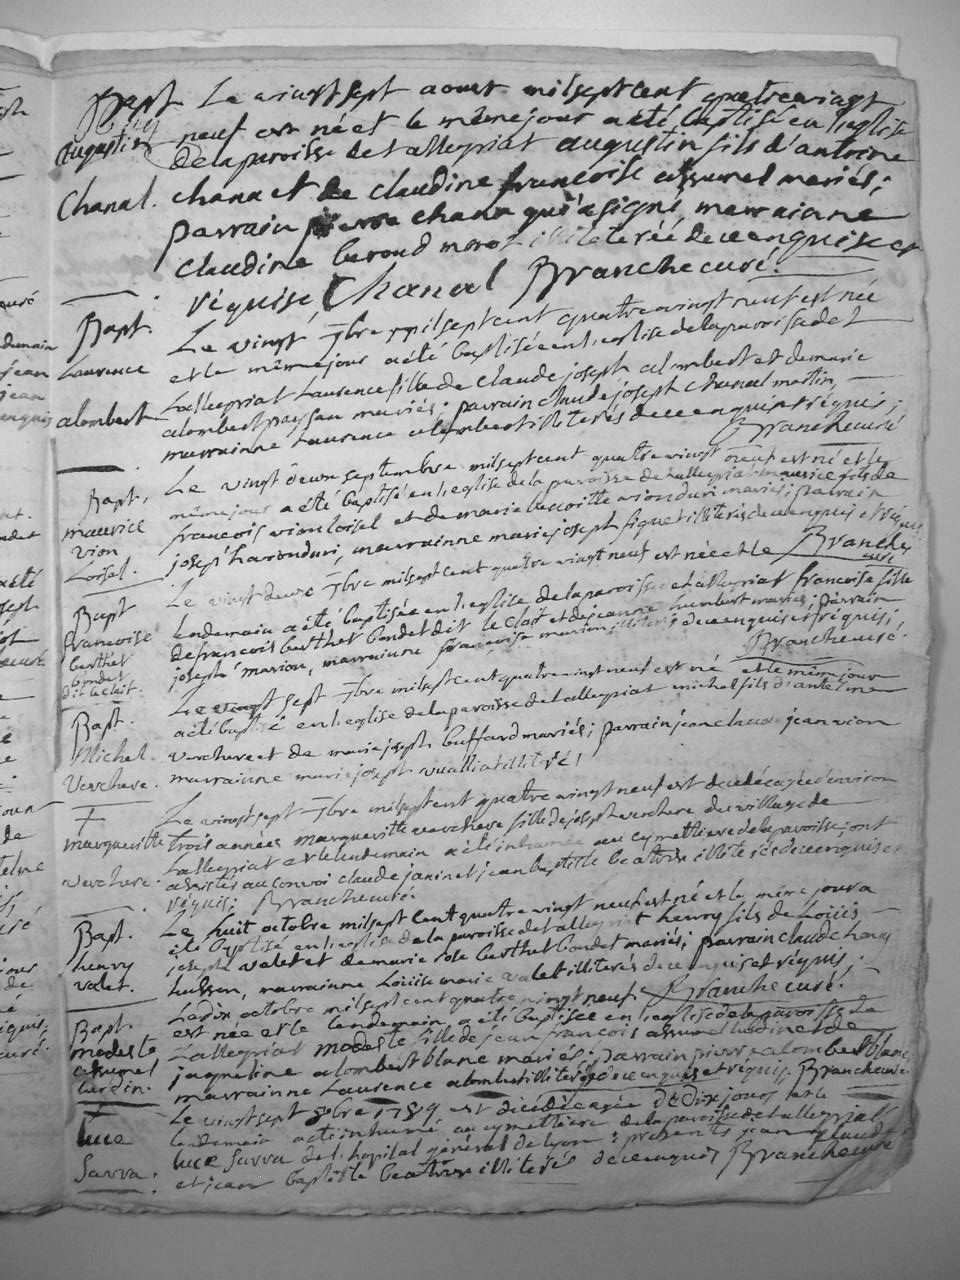 Bapt Le vingt sept aoust mil sept cent quatre vingt
Augustin neuf est né et le même jour a été baptisé en l'eglise
de la paroisse de tallegriat augustin fils d'antoine
Chanal. chanal et de claudine françoise assumel mariés;
parrain pierre chanal qui a signé, marrainne
claudine beroud morel illiterée de ce enquise et
réquise, Chanal Branche curé.
Bapt. Le vingt 7bre mil sept cent quatre vingt neuf est née
Laurence et le même jour a été baptisée en l'eglise de la paroisse de t
tallegriat Laurence fille de claude joseph alombert et de marie
alombert alombert mariés; parrain claude joseph chanal martin,
marrainne Laurence alombert illiterés de ce enquis et réquis;
Branche curé
Le vingt deux septembre mil sept cent quatre vingt neuf est né et le
Bapt. même jour a été baptisé en l'eglise de la paroisse de tallegriat maurice fils de
maurice françois vion loisel et de marie mariés; parrain
vion joseph marrainne marie joseph illiterés de ce enquis et réquis
Loisel. Branche curé
Bapt Le vingt deux 7bre mil sept cent quatre vingt neuf est née et le
françoise lendemain a été baptisée en l'eglise de la paroisse de tallegriat françoise fille
berthet de françois berthet bondet dit le clait et de jeanne humbert mariés; parrain
bondet joseph marion, marrainne françoise marion illiterés de ce enquis et réquis;
dit le clait. Branche curé.
Bapt. Le vingt sept 7bre mil sept cent quatre vingt neuf est né et le même jour
a été baptisé en l'eglise de la paroisse de tallegriat michel fils d'antelme
Michel. verchere et de marie joseph buffard mariés; parrain jean claude jean vion
Verchere. marrainne marie joseph illitéré!
Le vingt sept 7bre mil sept cent quatre vingt neuf est decedée agée d'environ
margueritte trois années marguerite verchere fille de joseph verchere du village de
tallegriat et le lendemain a été inhumée au cymettiere de la paroisse, ont
verchere. assistés au convoi claude janin et jean baptiste beatrix illiterés de ce enquis et
réquis; Branche curé.
Bapt. Le huit octobre mil sept cent quatre vingt neuf est né et le même jour a
été baptisé en l'eglise de la paroisse de tallegriat henry fils de Loüis
henry joseph valet et de marie berthet bondet mariés; parrain claude henry
valet. marrainne Loüise marie valet illiterés de ce enquis et réquis;
Le dix octobre mil sept cent quatre vingt neuf. Branche curé.
Bapt. est née et le lendemain a été baptisée en l'eglise de la paroisse de
modeste tallegriat modeste fille de jean françois assumel lurdin et de
assumel jaqueline alombert blanc mariés; parrain pierre alombert blanc,
lurdin. marrainne Laurence alombert illiterés de ce enquis et réquis. Branche curé.
Le vingt sept 8bre 1789 est décédée agée de dix jours et le
Luce lendemain a été inhumé au cymettiere de la paroisse de tallegriat
Savva. luce Savva de l'hopital général de Lyon: présents jean claude
et jean baptiste beatrix illiterés de ce enquis Branche curé